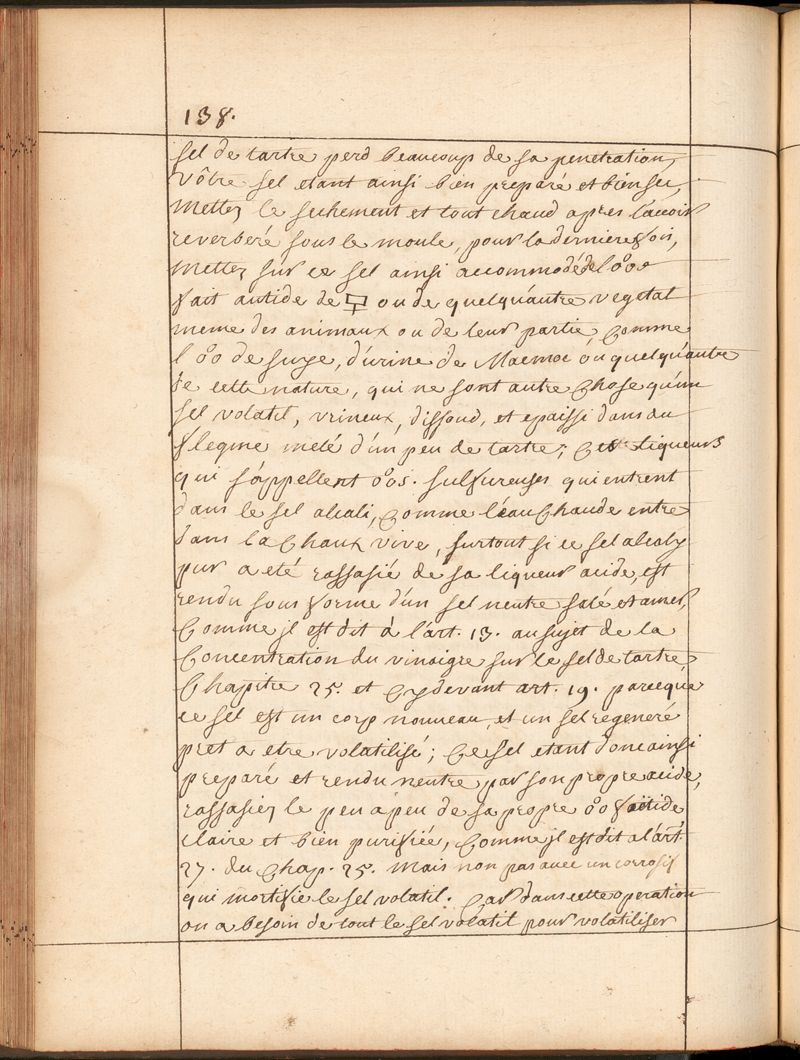 138.
sel de tartre perd beaucoup de sa penetration,
Vôtre sel etant ainsi bien preparé et bien sec,
Mettez le sechement et tout chaud apres l'avoir
reverberé sous le moule, pour la derniere fois,
Mettez sur ce sel ainsi accommodé de l'oo
fait autide de ou de quelqu'autre vegetal
meme des animaux ou de leur partie, Comme
l'oo de suye, d'urine de ou quelqu'autre
de cette nature, qui ne sont autre Chose qu'un
sel volatil, vrineux, dissoud, et epaissi dans du
flegme melé d'un peu de tartre; Ces Liqueurs
qui s'appellent oos. sulfureuses qui entrent
dans le sel alcali, Comme l'eau Chaude entre
dans la Chaux vive, surtout si ce sel alcaly
pur a eté rassasié de sa liqueur acide, est
rendu sous forme d'un sel neutre salé et amer,
Comme jl est dit à l'art. 13. au sujet de la
Concentration du vinaigre sur le sel de tartre,
Chapitre 25. et Cy devant art. 19. parceque
ce sel est un corp nouveau, et un sel regeneré
pret a etre volatilisé; Ce sel etant donc ainsi
preparé et rendu neutre par son propre acide,
rassasiez le peu a peu de sa propre oo fœtide
claire et bien purifiée, Comme jl est dit a l'art.
27. du Chap. 25. Mais non pas avec un corrosif
qui mortifie le sel volatil. Car dans cette operation
on a besoin de tout le sel volatil pour volatiliser